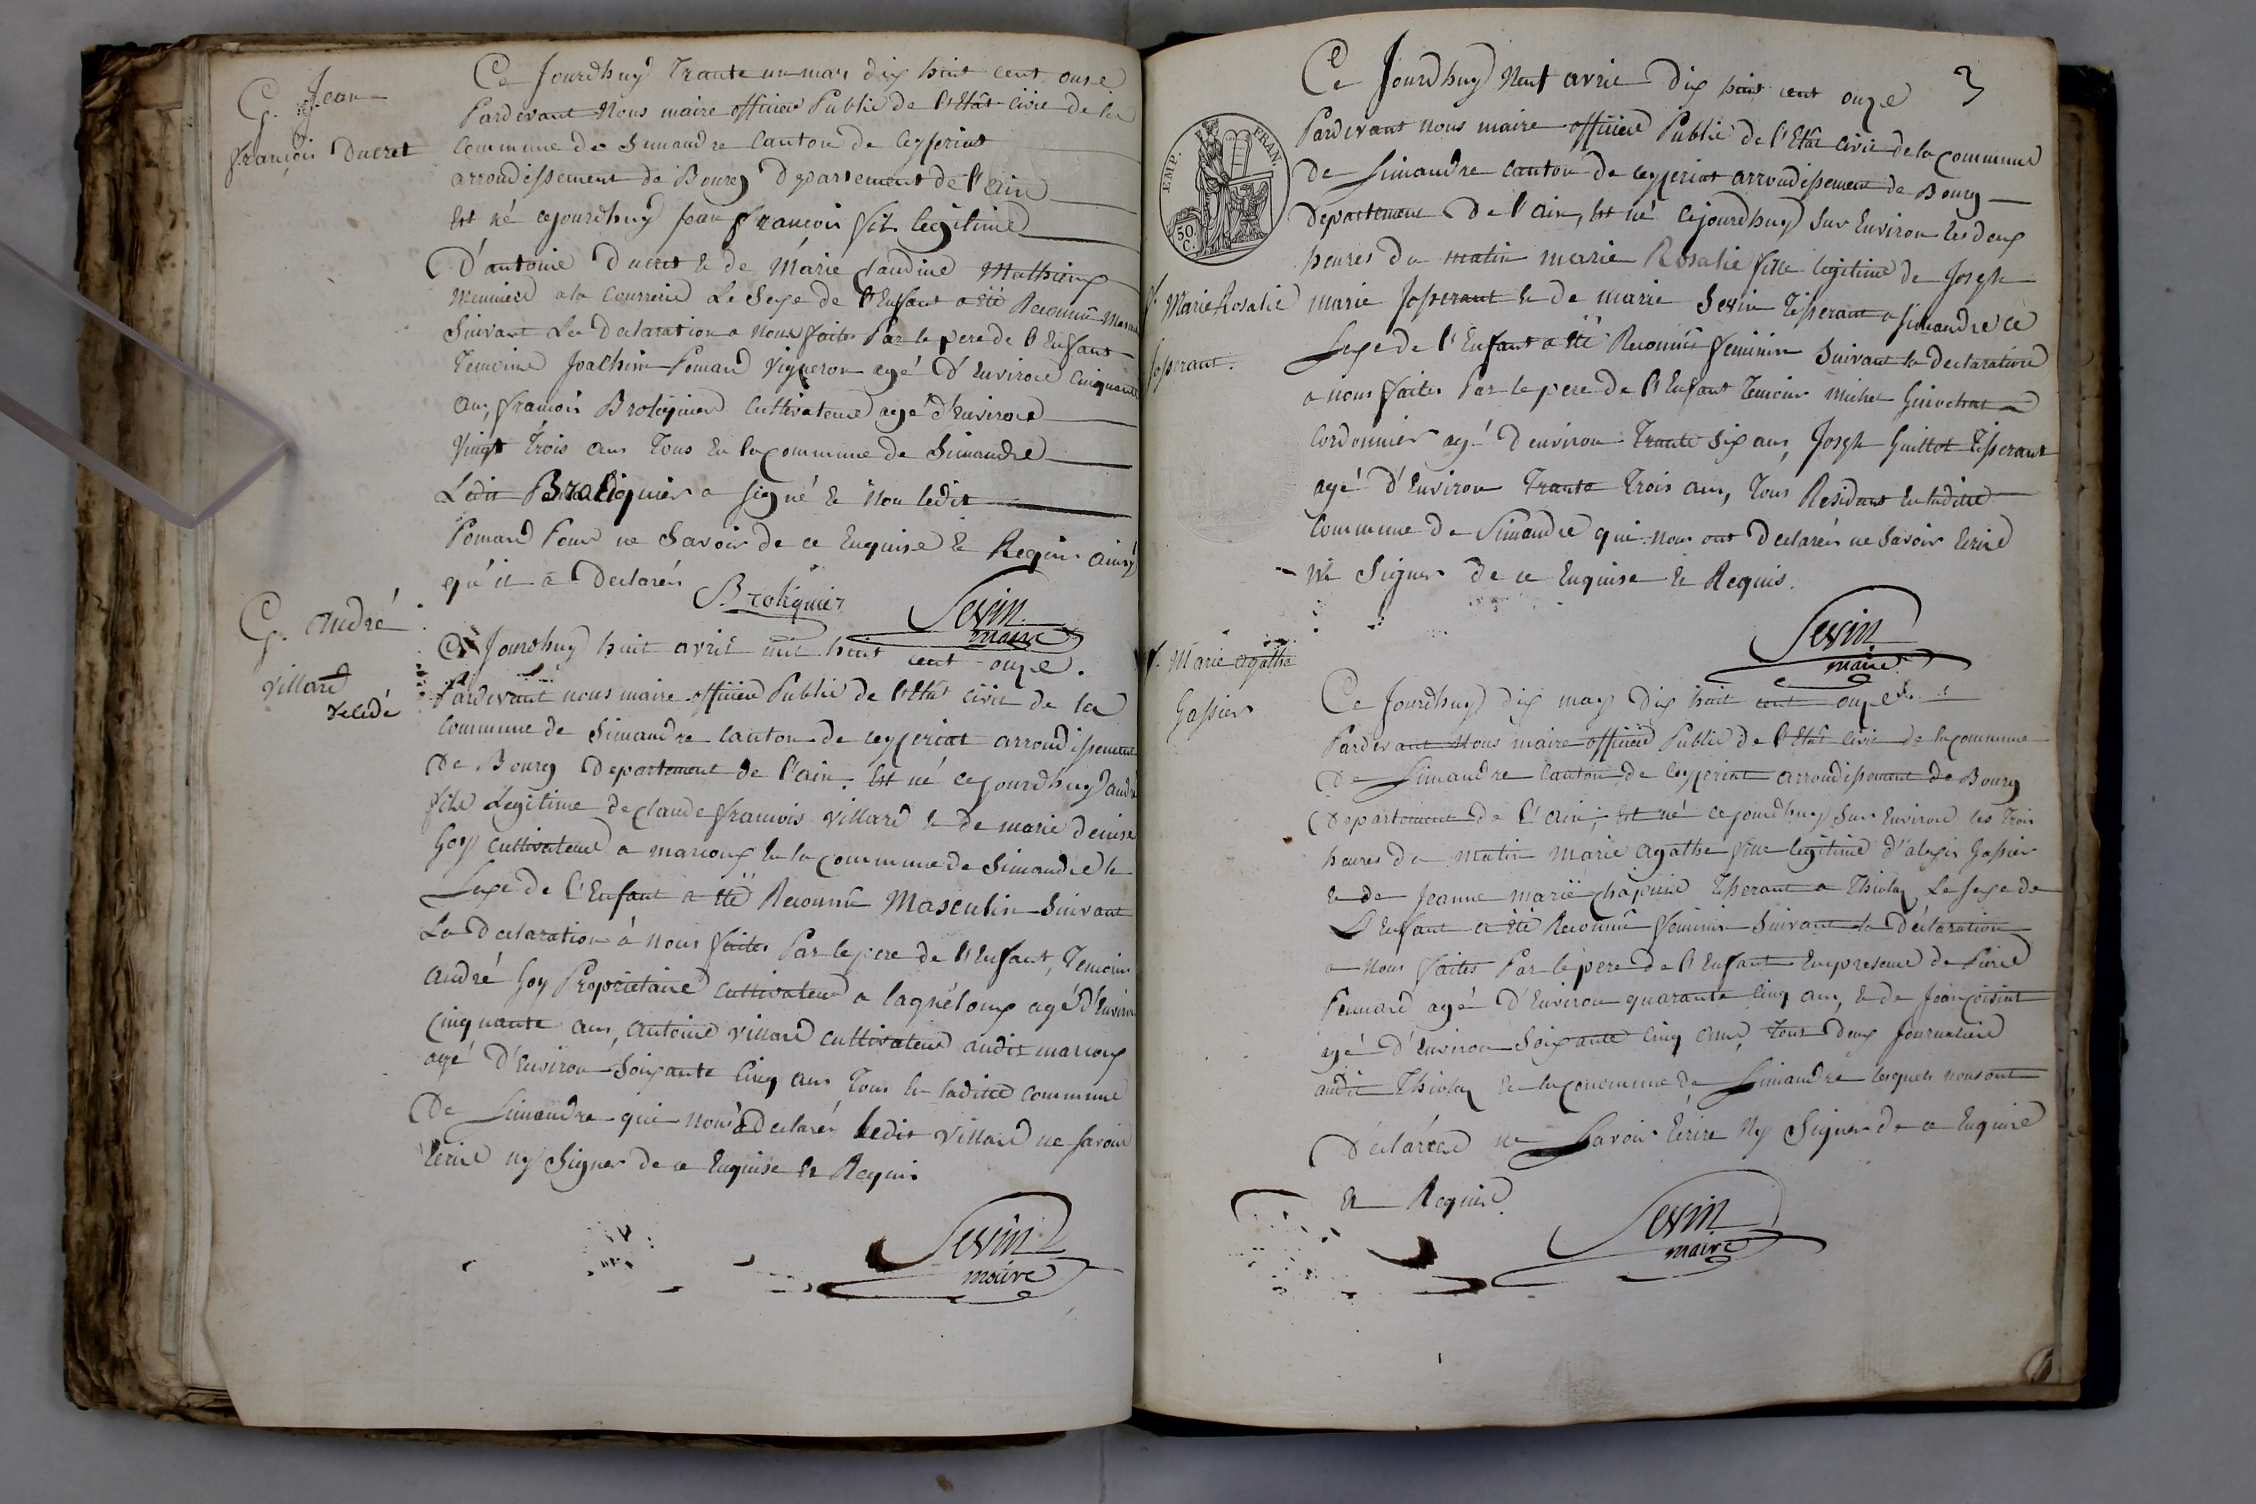 G. Jean
françois Ducret
Ce Jourdhuy Trante un mars dix huit cent onse
Pardevant Nous maire officier Public de l'Etât civie de la
Commune de Simandre Canton de Ceyseriat
arrondissement de Bourg Departement de l'ain
Est né cejourdhuy jean françois fils legitime
D'antoine Ducret & de Marie Claudine Mathieux
Meunier a la Courrerie Le Sexe de l'Enfant a été Reconnû Masculin
Suivant La Declaration a nous faites Par le pere de l'Enfant
Temoins Joachim Pomard Vigneron agé D'Environ Cinquante
ans, françois Broliquier Cultivateur agé d'environ
Vingt Trois ans Tous En la Commune de Simandre
Ledit Broliquier a signé & Non ledit
Pomard Pour ne Savoir de ce Enquise & Requis ainsy
qu'il a Declarés
Broliquier
Sevin
maire
G. André
villard
décédé
Ce Jourdhuy huit avril mil huit cent onze.
Pardevant nous maire officier Public de l'Etât civil de la
Commune de Simandre Canton de Ceyseriat arrondissement
De Bourg Departement de l'ain. Est né cejourdhuy andré
fils Legitime de claude françois villard & de marie denise
Goy Cultivateur a marcoux En la Commune de Simandre le
Sexe de l'Enfant a été Reconnû Masculin Suivant
La Declaration à nous faites Par le pere de l'Enfant, Temoins
André Goy Proprietaire Cultivateur a lagnéloux agé D'Environ
Cinquante ans, Antoine villard Cultivateur audit marcoux
agé D'Environ Soixante Cinq ans Tous En laditte Commune
De Simandre qui nous a declarés ledit villard ne savoir
Ecrire ny Signer de ce Enquise Et Requis
Sevin
maire
3
EMP. FRAN.
50. C.
f. Marie Rosalie
Josserant.
Ce Jourdhuy Neuf avril Dix huit cent onze
Pardevant nous maire officier Public de l'Etât Civil de la Commune
De Simandre Canton de Ceyseriat arrondissement de Bourg
Departement De l'ain, Est né Cejourdhuy Sur Environ les Deux
heures Du matin marie Rosalie fille legitime de Joseph
marie Josserant & de marie Sevin Tisserant a Simandre Le
Sexe de l'Enfant a été Reconnû feminin Suivant la Declaration
a nous faites Par le pere de l'Enfant Temoins Michel Guinchat
Cordonnier agé D'environ Trante Six ans, Joseph Guillot Tisserant
agé D'Environ Trante Trois ans, Tous Residant En laditte
Commune de Simandre qui nous ont Declarés ne Savoir Ecrire
Ni Signer de ce Enquise & Requis.
Sevin
maire
f. Marie agathe
Gassier
Ce Jourdhuy dix may Dix huit cent onze
Pardevant Nous maire officier Public de l'Etât Civil de la Commune
De Simandre Canton de Ceyseriat arrondissement de Bourg
Departement de l'ain, Est né cejourdhuy Sur Environ les Trois
heures Du matin Marie Agathe fille legitime d'alexis Gassier
& de Jeanne marie chapuis Tisserant a Thiolay Le Sexe de
L'Enfant a été Reconnû feminin Suivant la Déclaration
a nous faites Par le pere de l'Enfant En presence de Pierre
Pomard agé D'Environ quarante Cinq ans, & de Jean
agé D'Environ Soixante Cinq ans, Tous Deux Journalier
audit Thiolay de la Commune de Simandre lesquels nous ont
Déclarées ne Savoir Ecrire Ny Signer de ce Enquise
Et Requise.
Sevin
maire